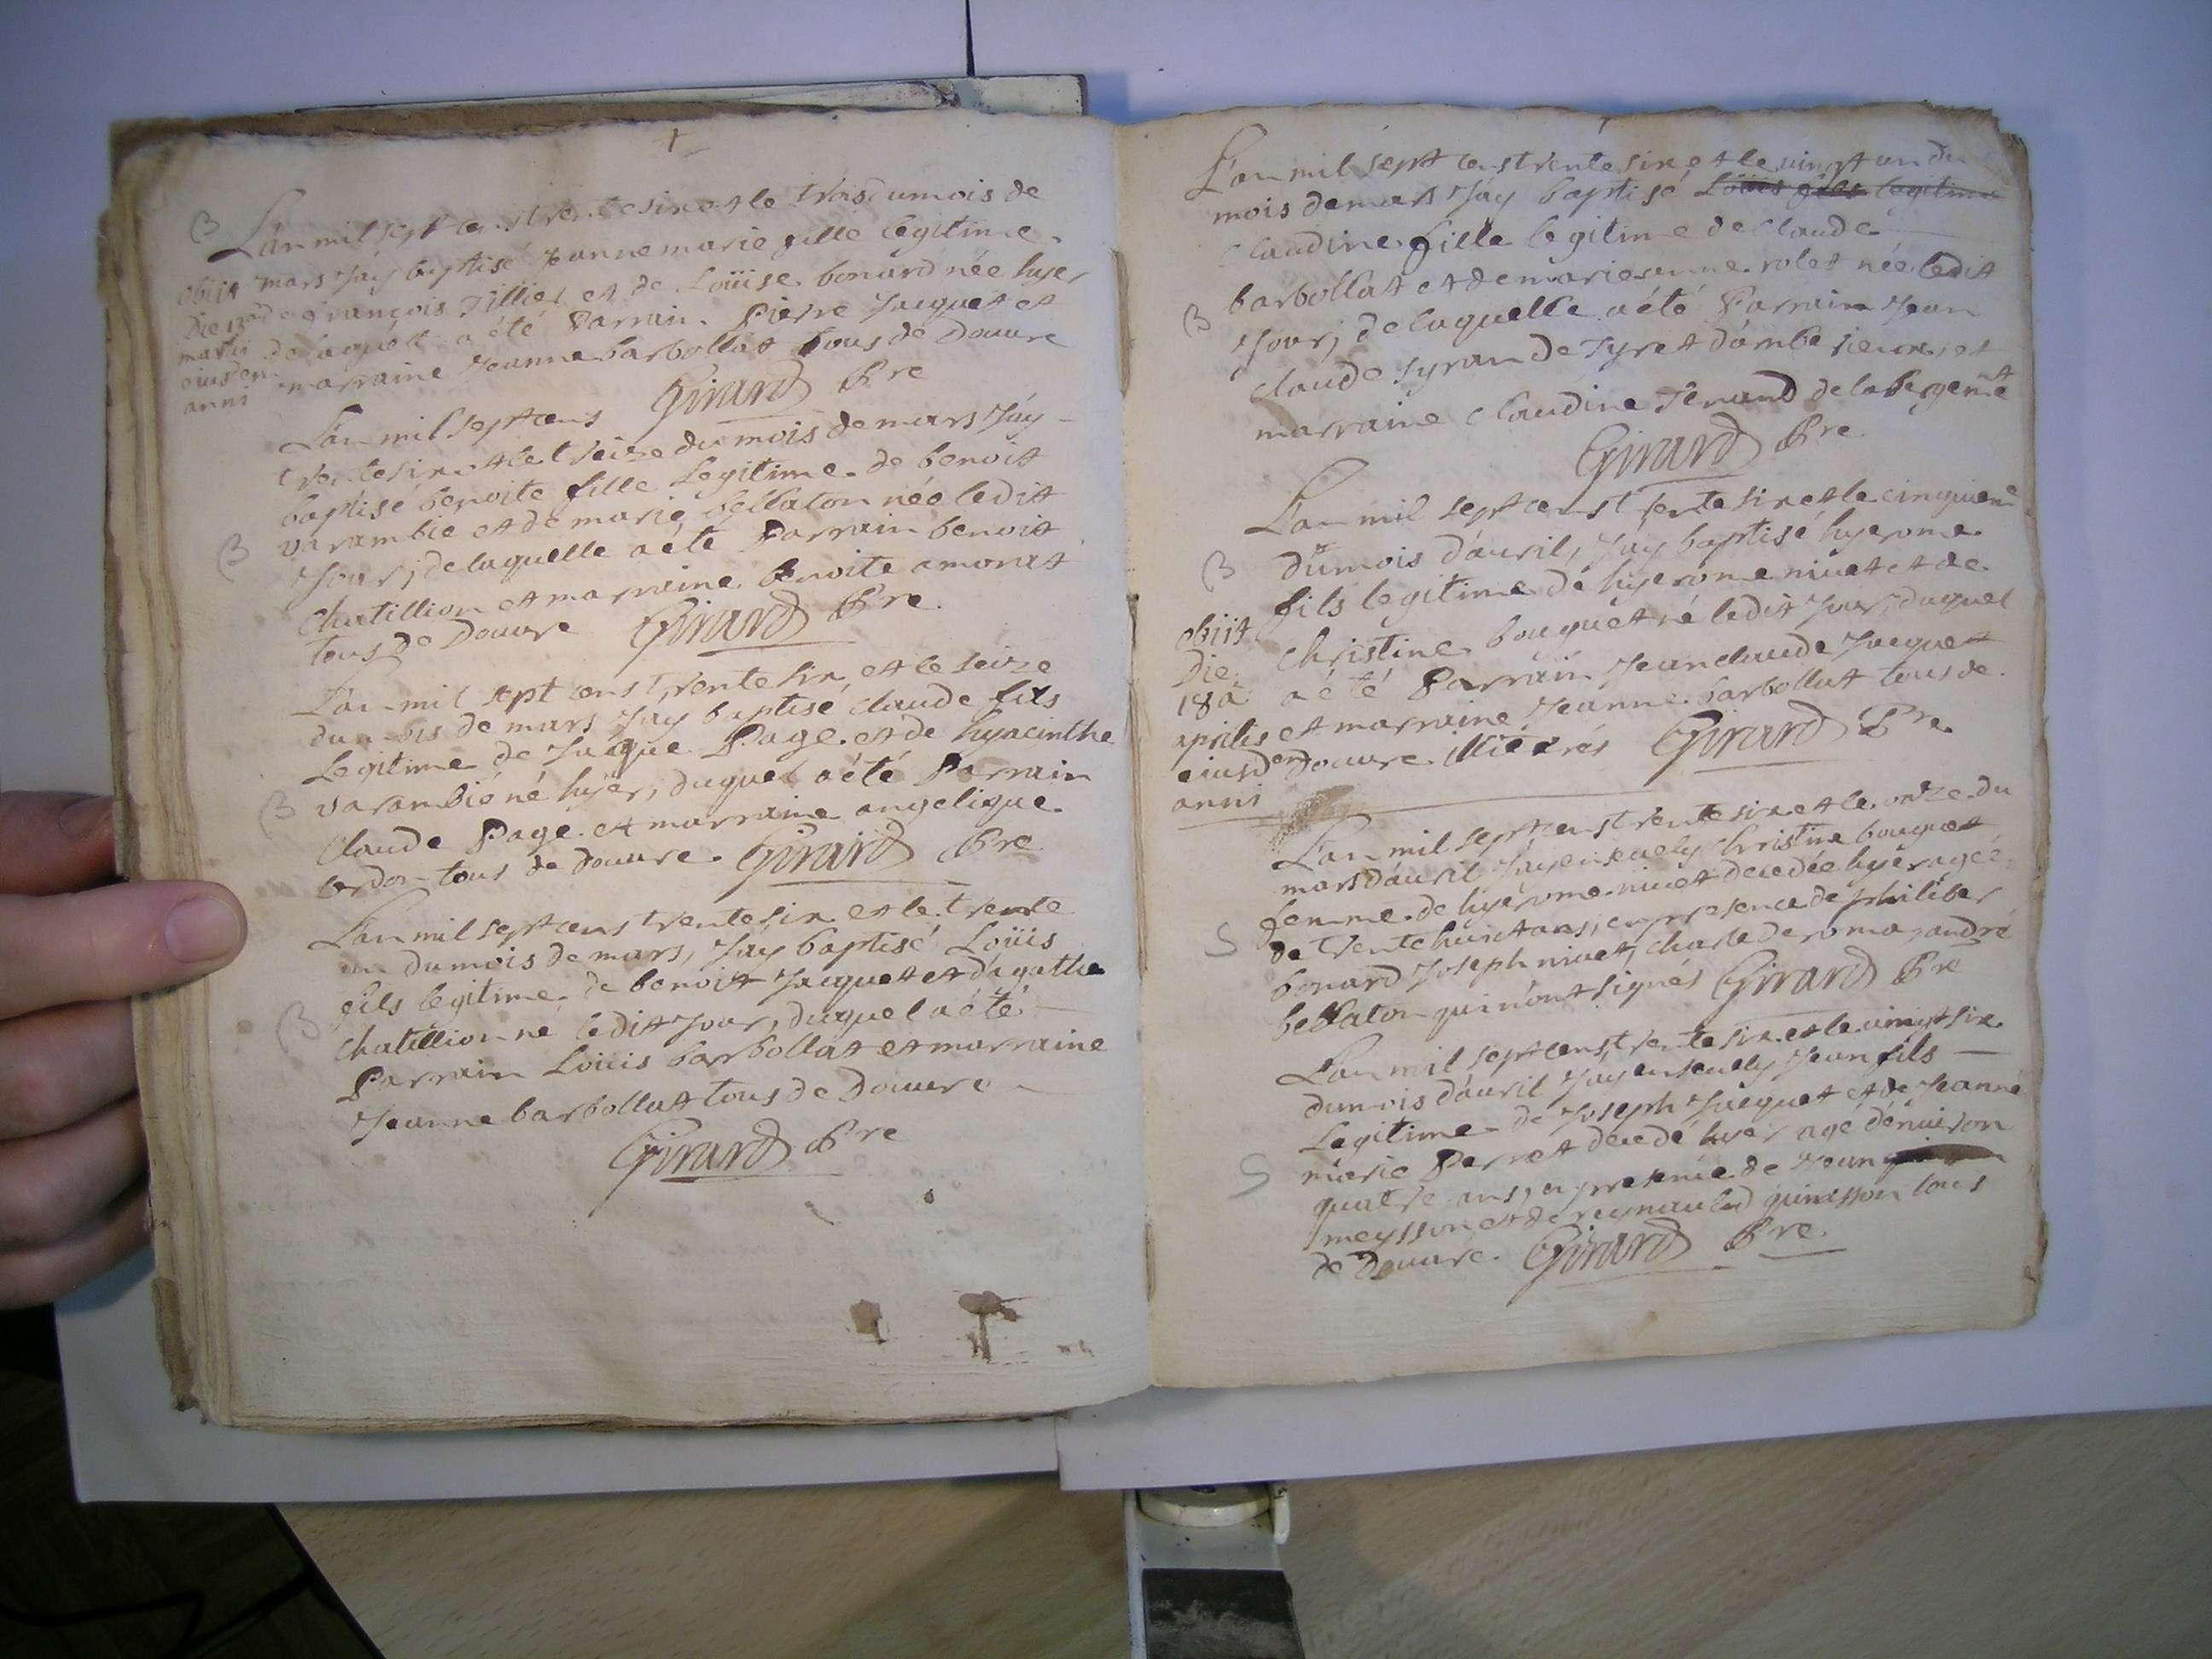 B
L'an mil sept cens trente six et le trois du mois de
mars j'ay baptisé jeanne marie fille legitime
de françois Tillier et de Loüise bonard née hyer
de laquelle a été Parrain Pierre jacquet et
marraine jeanne barbollat tous de Douvre
obiit
Die 13a
martii
eiusdem
anni
Girard Pre
L'an mil sept cens
trente six et le treize du mois de mars j'ay
baptisé benoite fille Legitime de benoit
varambie et de marie bellaton née ledit
B
jour; de laquelle a été Parrain benoit
chatillion et marraine benoite amorat
tous de Douvre Girard Pre
L'an mil sept cens trente six et le seize
du mois de mars j'ay baptisé claude fils
Legitime de jaque Page et de hyacinthe
B
varambié né hyer, duquel a été Parrain
claude Page et marraine angelique
tous de douvre. Girard Pre
L'an mil sept cens trente six et le trente
un du mois de mars, j'ay baptisé Loüis
fils legitime de benoit jacquet et d'agathe
B
chatillion né ledit jour, duquel a été
Parrain Loüis barbollat et marraine
jeanne barbollat tous de Douvre
Girard Pre
L'an mil sept cens trente six et le vingt un du
mois de mars j'ay baptisé Loüis fils legitime
claudine fille legitime de claude
barbollat et de marie anne rolet née ledit
B
jour; de laquelle a été Parrain jean
claude syran de syret d'ambe rieux, et
marraine claudine Tenand de labergemt
Girard Pre
L'an mil sept cens trente six et le cinquieme
B
du mois d'avril, j'ay baptisé hyerome
fils legitime de hyerome nivet et de
christine bouquet né ledit jour, duquel
a été Parrain jean claude jacquet
et marraine jeanne barbollat tous de
Douvre illitérés Girard Pre
obiit
Die
18a
aprilis
eiusdem
anni
L'an mil sept cens trente six et le onze du
mars d'avril j'ay ensevely christine bouquet
femme de hyerome nivet decedée hyer agée
S
de trente huict ans, en presence de philiber
bonard joseph nivet, charle deroma, andré
bellaton qui n'ont signés Girard Pre
L'an mil sept cens trente six et le vingt six
du mois d'avril j'ay ensevely jean fils
Legitime de joseph jacquet et de jeanne
S
marie Perret decedé hyer agé d'environ
quatre ans, en presence de jean
meysson et de reynauld guinesson tous
de Douvre. Girard Pre